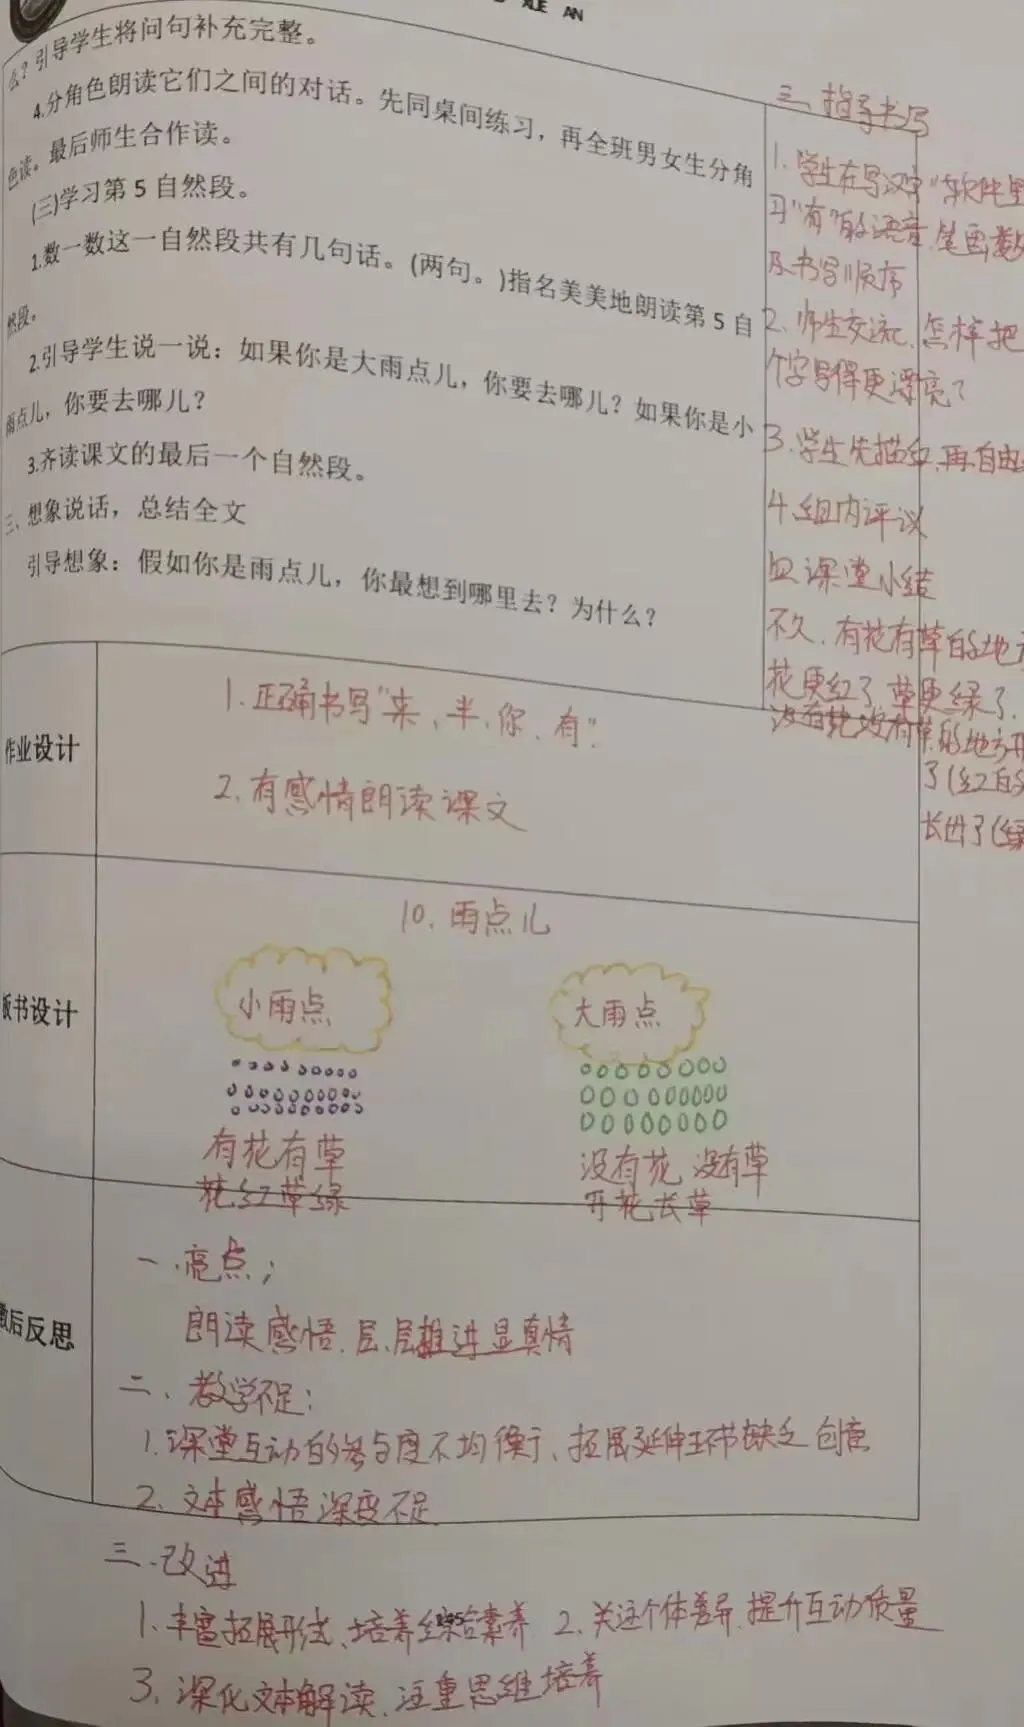 XUE AN
么？引导学生将问句补充完整。
4.分角色朗读它们之间的对话。先同桌间练习，再全班男女生分角
色读。最后师生合作读。
(三)学习第5自然段。
1.数一数这一自然段共有几句话。(两句。)指名美美地朗读第5自
然段。
2.引导学生说一说：如果你是大雨点儿，你要去哪儿？如果你是小
雨点儿，你要去哪儿？
3.齐读课文的最后一个自然段。
三、想象说话，总结全文
引导想象：假如你是雨点儿，你最想到哪里去？为什么？
三、指导书写
1.学生在写汉字"软件里
习"有"的语音,笔画数
及书写顺序
2、师生交流,怎样把
个字写得更漂亮？
3.学生先描红,再自由
4.组内评议
四 课堂小结
不久,有花有草的地方
花更红了,草更绿了,
没有花没有草的地方开
了(红的
长出了(绿
作业设计
1.正确书写"来、半、你、有".
2.有感情朗读课文
板书设计
10.雨点儿
小雨点
大雨点
有花有草
花红草绿
没有花 没有草
开花长草
教后反思
一.亮点；
朗读感悟.层层推进显真情
二、教学不足：
1.课堂互动的参与度不均衡、拓展延伸环节缺乏创意
2、文本感悟深度不足
三.改进
1.丰富拓展形式、培养综合素养 2、关注个体差异.提升互动质量
3、深化文本解读、注重思维培养